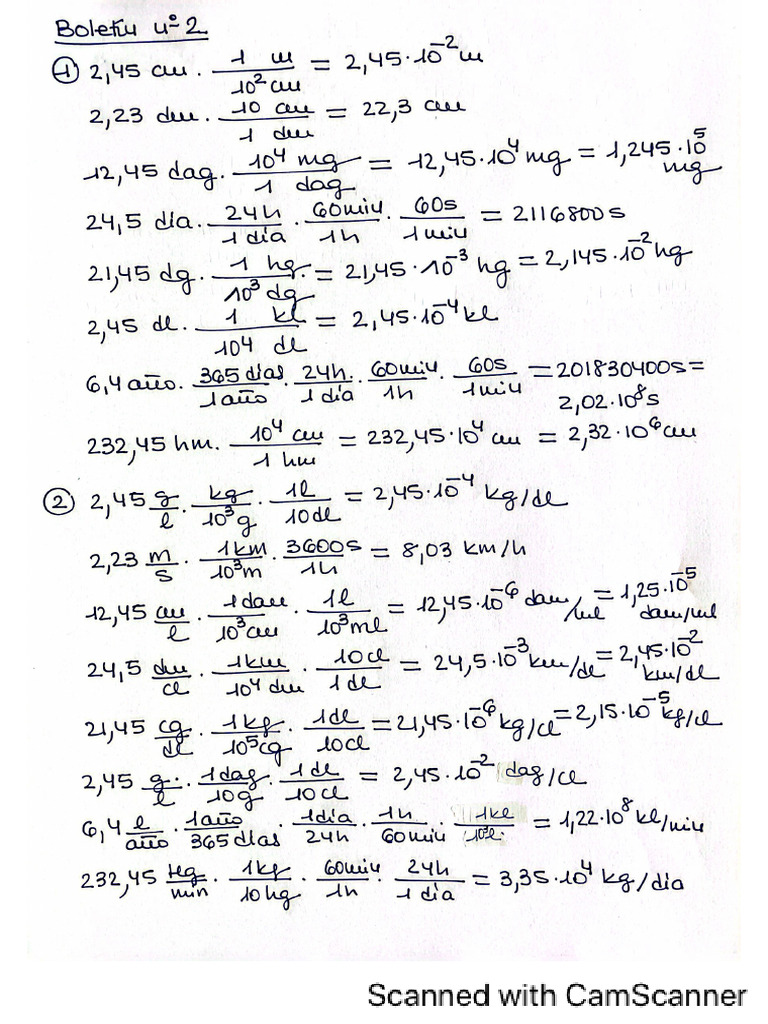 Boletín nº 2
① 2,45 cm · 1 m / 10² cm = 2,45·10⁻² m
2,23 dm · 10 cm / 1 dm = 22,3 cm
12,45 dag · 10⁴ mg / 1 dag = 12,45·10⁴ mg = 1,245·10⁵ mg
24,5 día · 24h / 1 día · 60 min / 1h · 60s / 1 min = 2116800 s
21,45 dg · 1 hg / 10³ dg = 21,45·10⁻³ hg = 2,145·10⁻² hg
2,45 dl · 1 kl / 10⁴ dl = 2,45·10⁻⁴ kl
6,4 año · 365 días / 1 año · 24h / 1 día · 60 min / 1h · 60s / 1 min = 201830400 s = 2,02·10⁸ s
232,45 hm · 10⁴ cm / 1 hm = 232,45·10⁴ cm = 2,32·10⁶ cm
② 2,45 g/l · kg / 10³ g · 1l / 10 dl = 2,45·10⁻⁴ kg/dl
2,23 m/s · 1 km / 10³ m · 3600 s / 1h = 8,03 km/h
12,45 cm/l · 1 dam / 10³ cm · 1l / 10³ ml = 12,45·10⁻⁶ dam/ml = 1,25·10⁻⁵ dam/ml
24,5 dm/cl · 1 km / 10⁴ dm · 10 cl / 1 dl = 24,5·10⁻³ km/dl = 2,45·10⁻² km/dl
21,45 cg/dl · 1 kg / 10⁵ cg · 1 dl / 10 cl = 21,45·10⁻⁶ kg/cl = 2,15·10⁻⁵ kg/cl
2,45 g/l · 1 dag / 10 g · 1 dl / 10 cl = 2,45·10⁻² dag/cl
6,4 l/año · 1 año / 365 días · 1 día / 24h · 1h / 60 min · 1 kl / 10³ l = 1,22·10⁸ kl/min
232,45 Hg/min · 1 kg / 10 hg · 60 min / 1h · 24h / 1 día = 3,35·10⁴ kg/día
Scanned with CamScanner